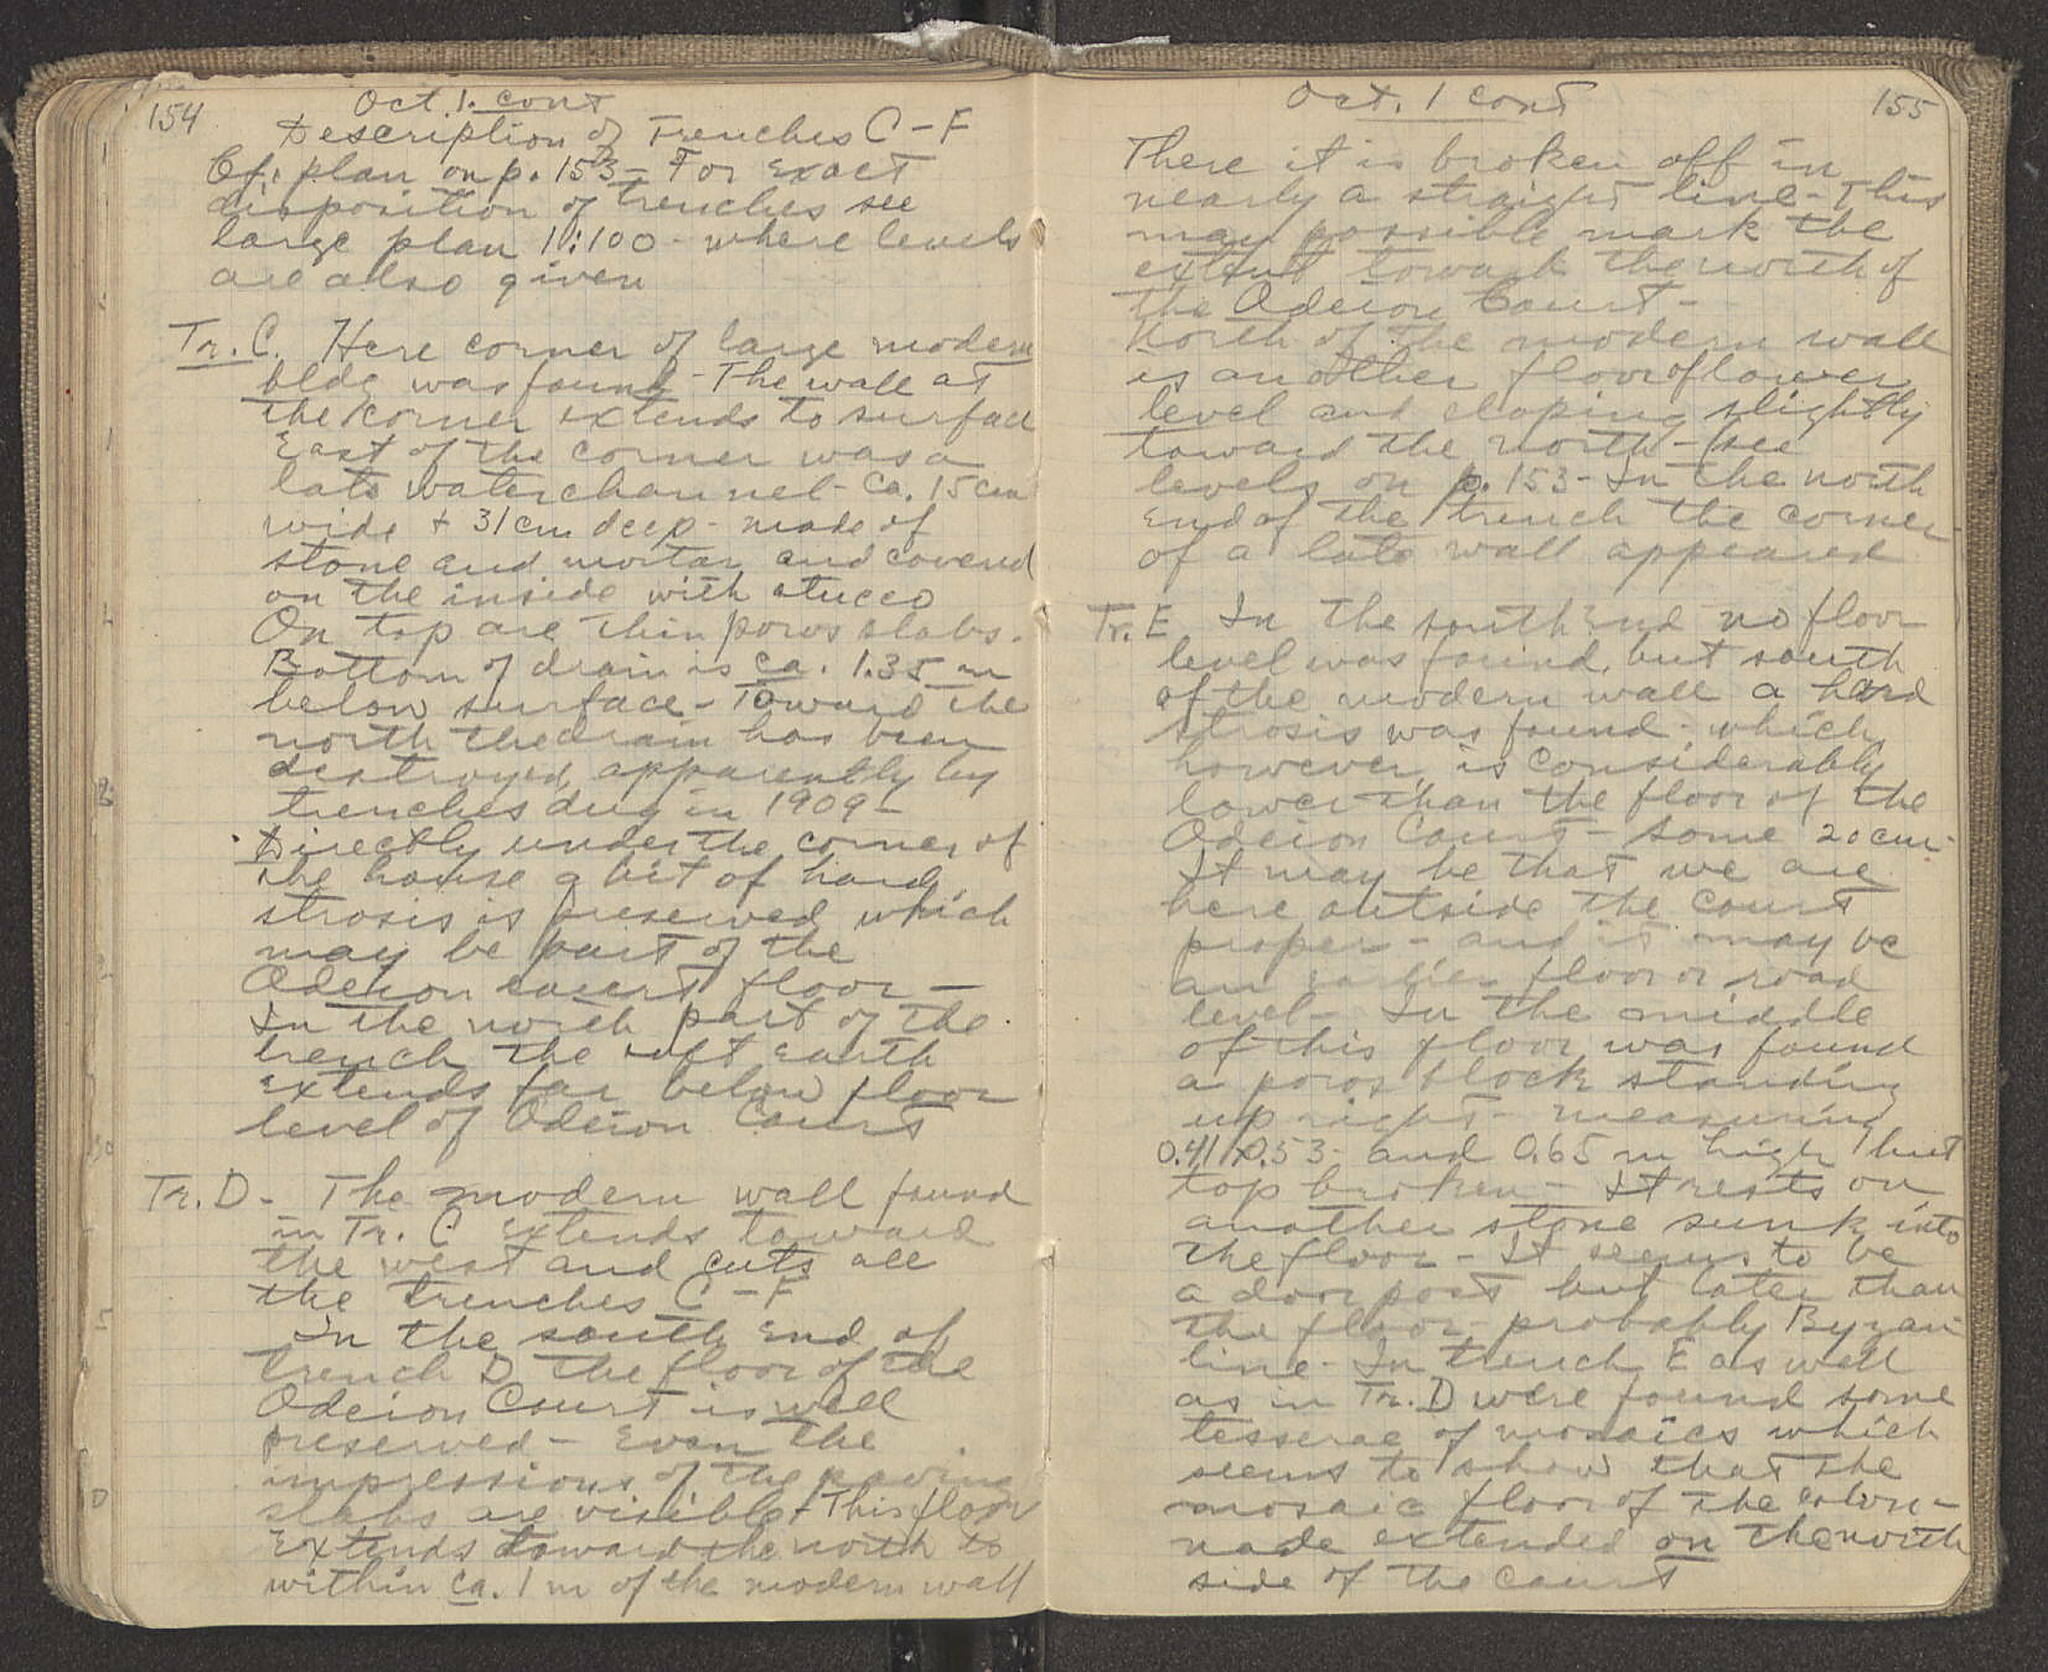 154
Oct. 1. cont
Description of Trenches C - F
Cf. plan on p. 153 - For exact
disposition of trenches see
large plan 1:100 - where levels
are also given
Tr. C. Here corner of large modern
bldg was found - The wall at
the corner extends to surface
East of the corner was a
late waterchannel - ca. 15 cm
wide + 31 cm deep - made of
stone and mortar and covered
on the inside with stucco
On top are thin poros slabs.
Bottom of drain is ca. 1.35 m
below surface - Toward the
north the drain has been
destroyed, apparently by
trenches dug in 1909 -
Directly under the corner of
the house a bit of hard
strosis is preserved which
may be part of the
Odeion court floor -
In the north part of the
trench the soft earth
extends far below floor
level of Odeion Court
Tr. D - The modern wall found
in Tr. C extends toward
the west and cuts all
the trenches C - F
In the south end of
trench D the floor of the
Odeion Court is well
preserved - Even the
impressions of the paving
slabs are visible. This floor
extends toward the north to
within ca. 1 m of the modern wall
Oct. 1 cont
155
There it is broken off in
nearly a straight line - This
may possible mark the
extent toward the north of
the Odeion Court -
North of the modern wall
is another floor of lower
level and sloping slightly
toward the north - (see
levels on p. 153 - In the north
end of the trench the corner
of a late wall appeared
Tr. E In the south end no floor
level was found, but south
of the modern wall a hard
strosis was found - which,
however, is considerably
lower than the floor of the
Odeion Court - some 20 cm.
It may be that we are
here outside the court
proper - and it may be
an earlier floor or road
level - In the middle
of this floor was found
a poros block standing
upright - measuring
0.41 x 0.53 - and 0.65 m high, but
top broken - It rests on
another stone sunk into
the floor - It seems to be
a door post but later than
the floor, probably Byzan-
tine - In trench E as well
as in Tr. D were found some
tesserae of mosaics which
seems to show that the
mosaic floor of the colon-
nade extended on the north
side of the court